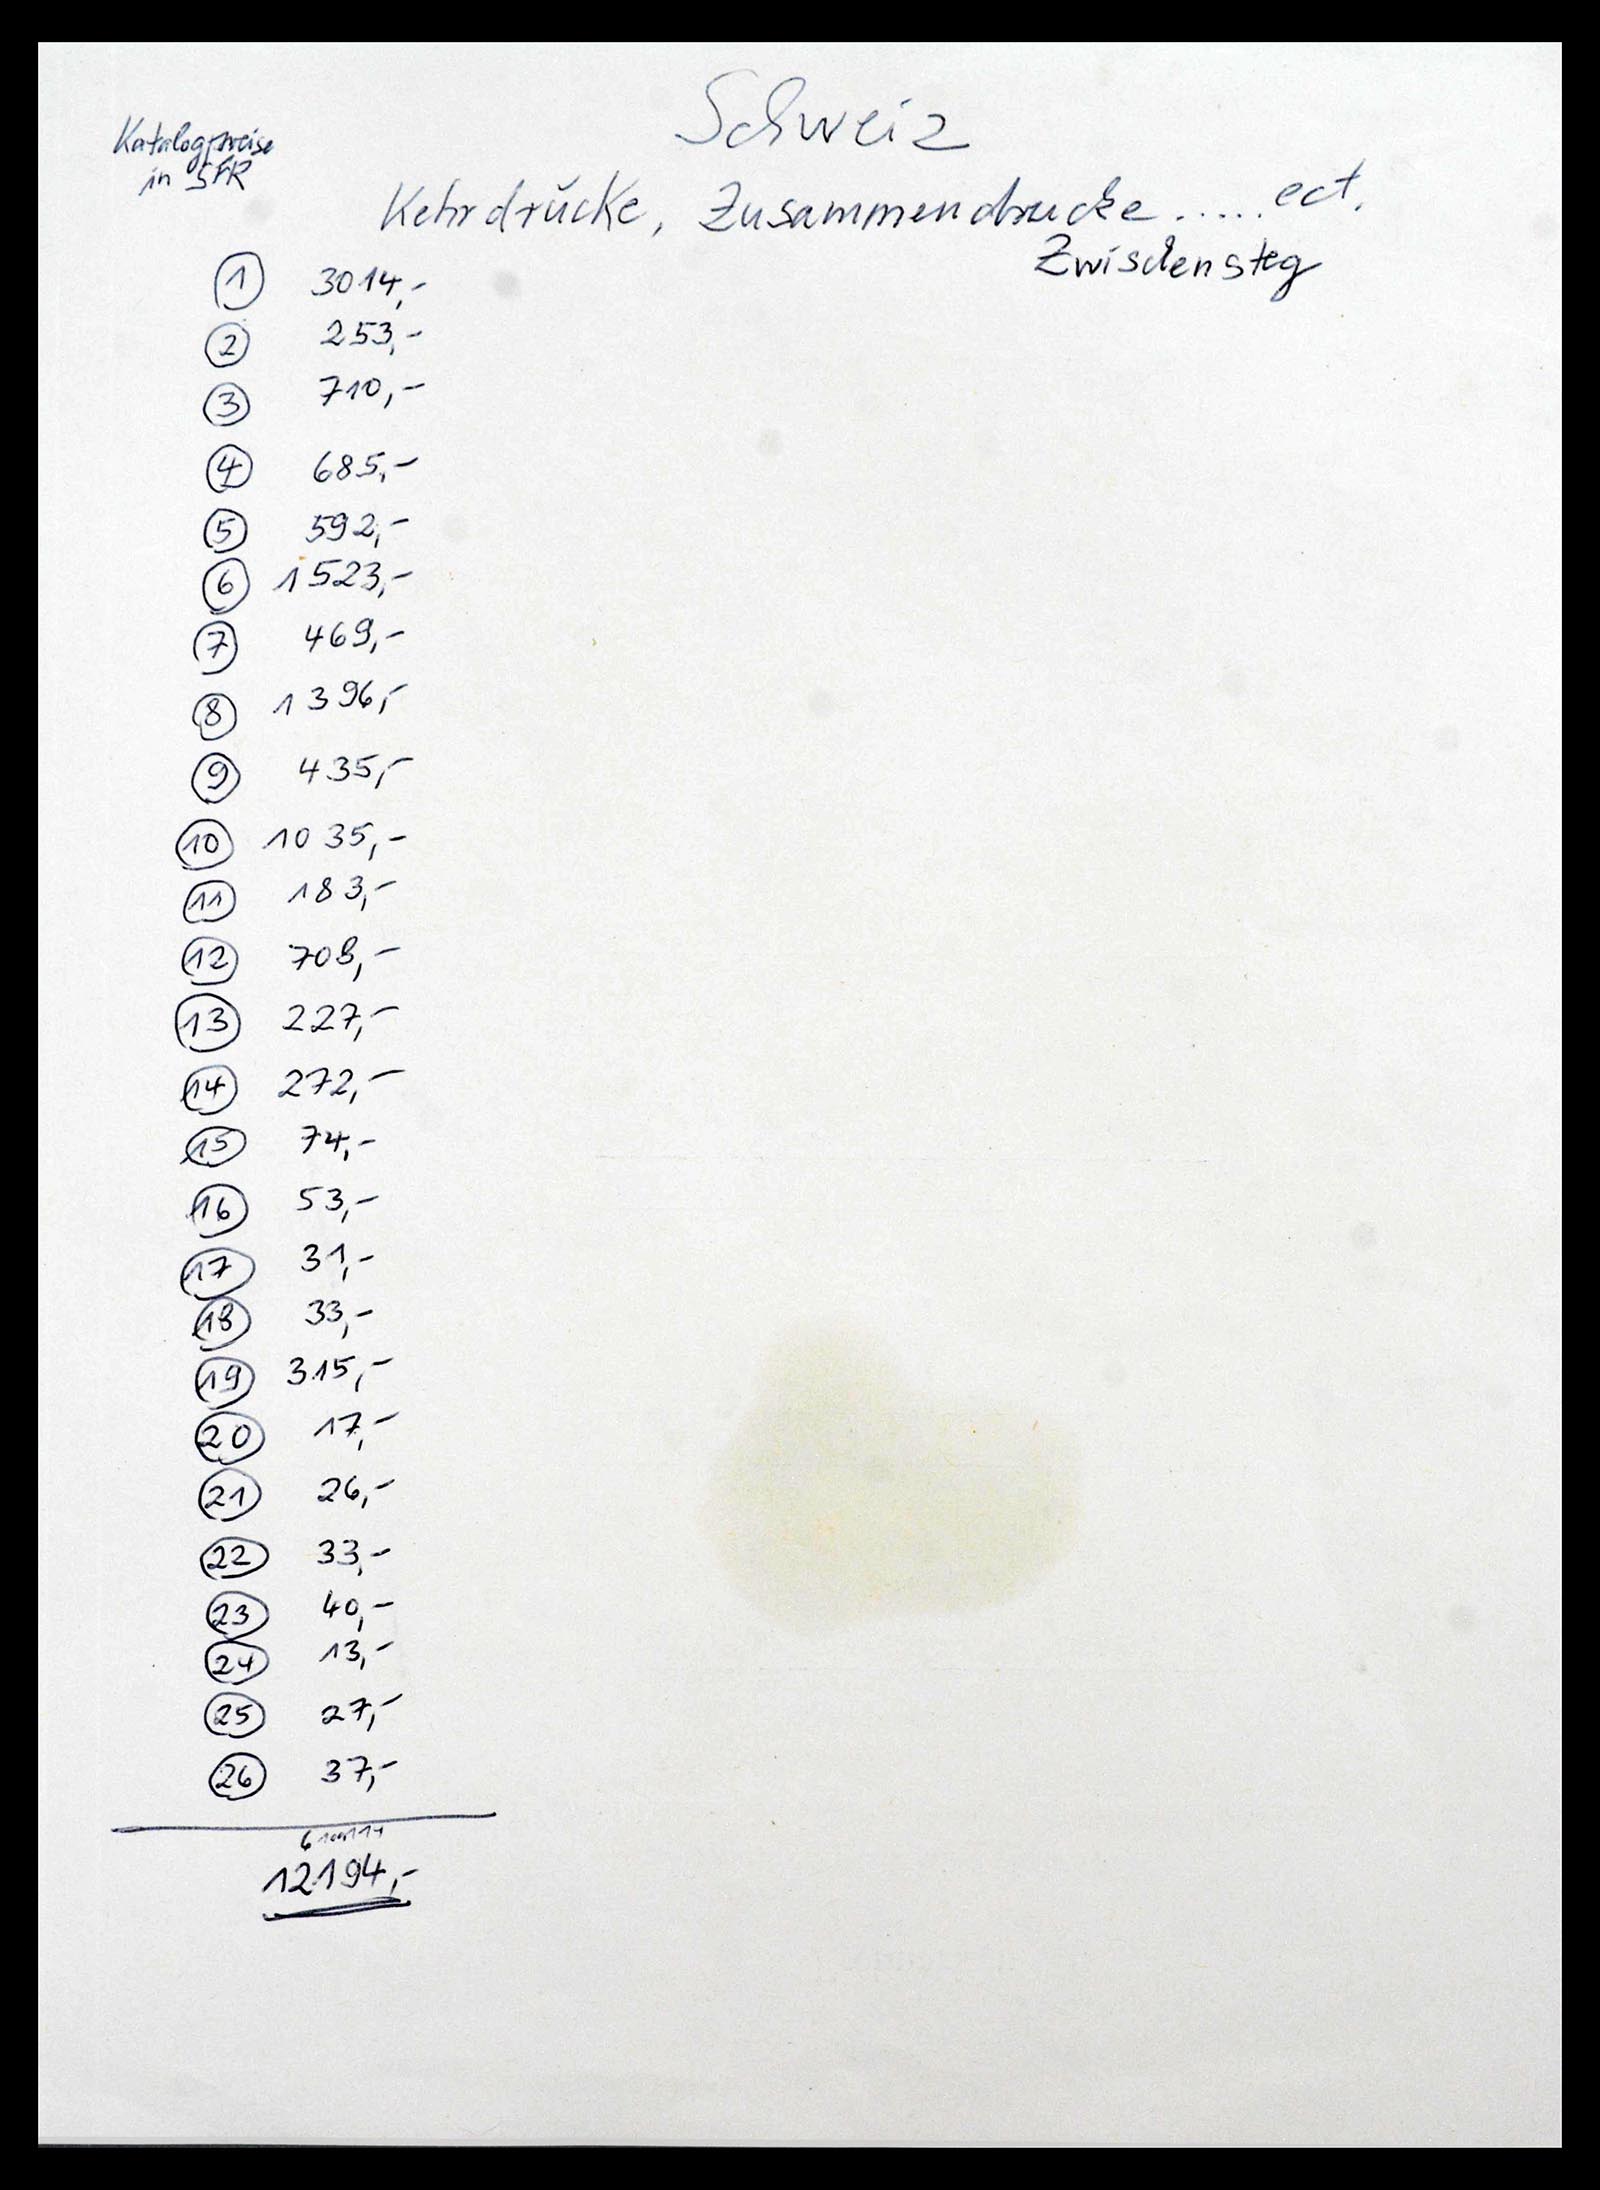 Schweiz
Katalogpreise
in SFR
Kehrdrücke, Zusammendrucke.....ect.
Zwischensteg
1 3014,-
2 253,-
3 710,-
4 685,-
5 592,-
6 1523,-
7 469,-
8 1396,-
9 435,-
10 1035,-
11 183,-
12 708,-
13 227,-
14 272,-
15 74,-
16 53,-
17 31,-
18 33,-
19 315,-
20 17,-
21 26,-
22 33,-
23 40,-
24 13,-
25 27,-
26 37,-
12194,-